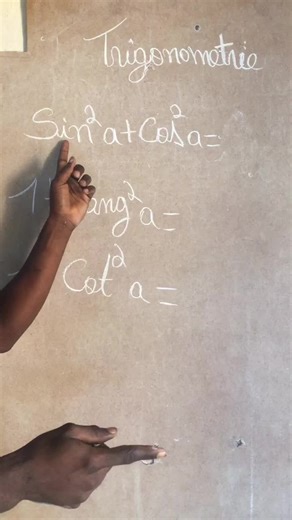 Trigonometrie
Sin²a+Cos²a=
ang²a=
Cot²a=